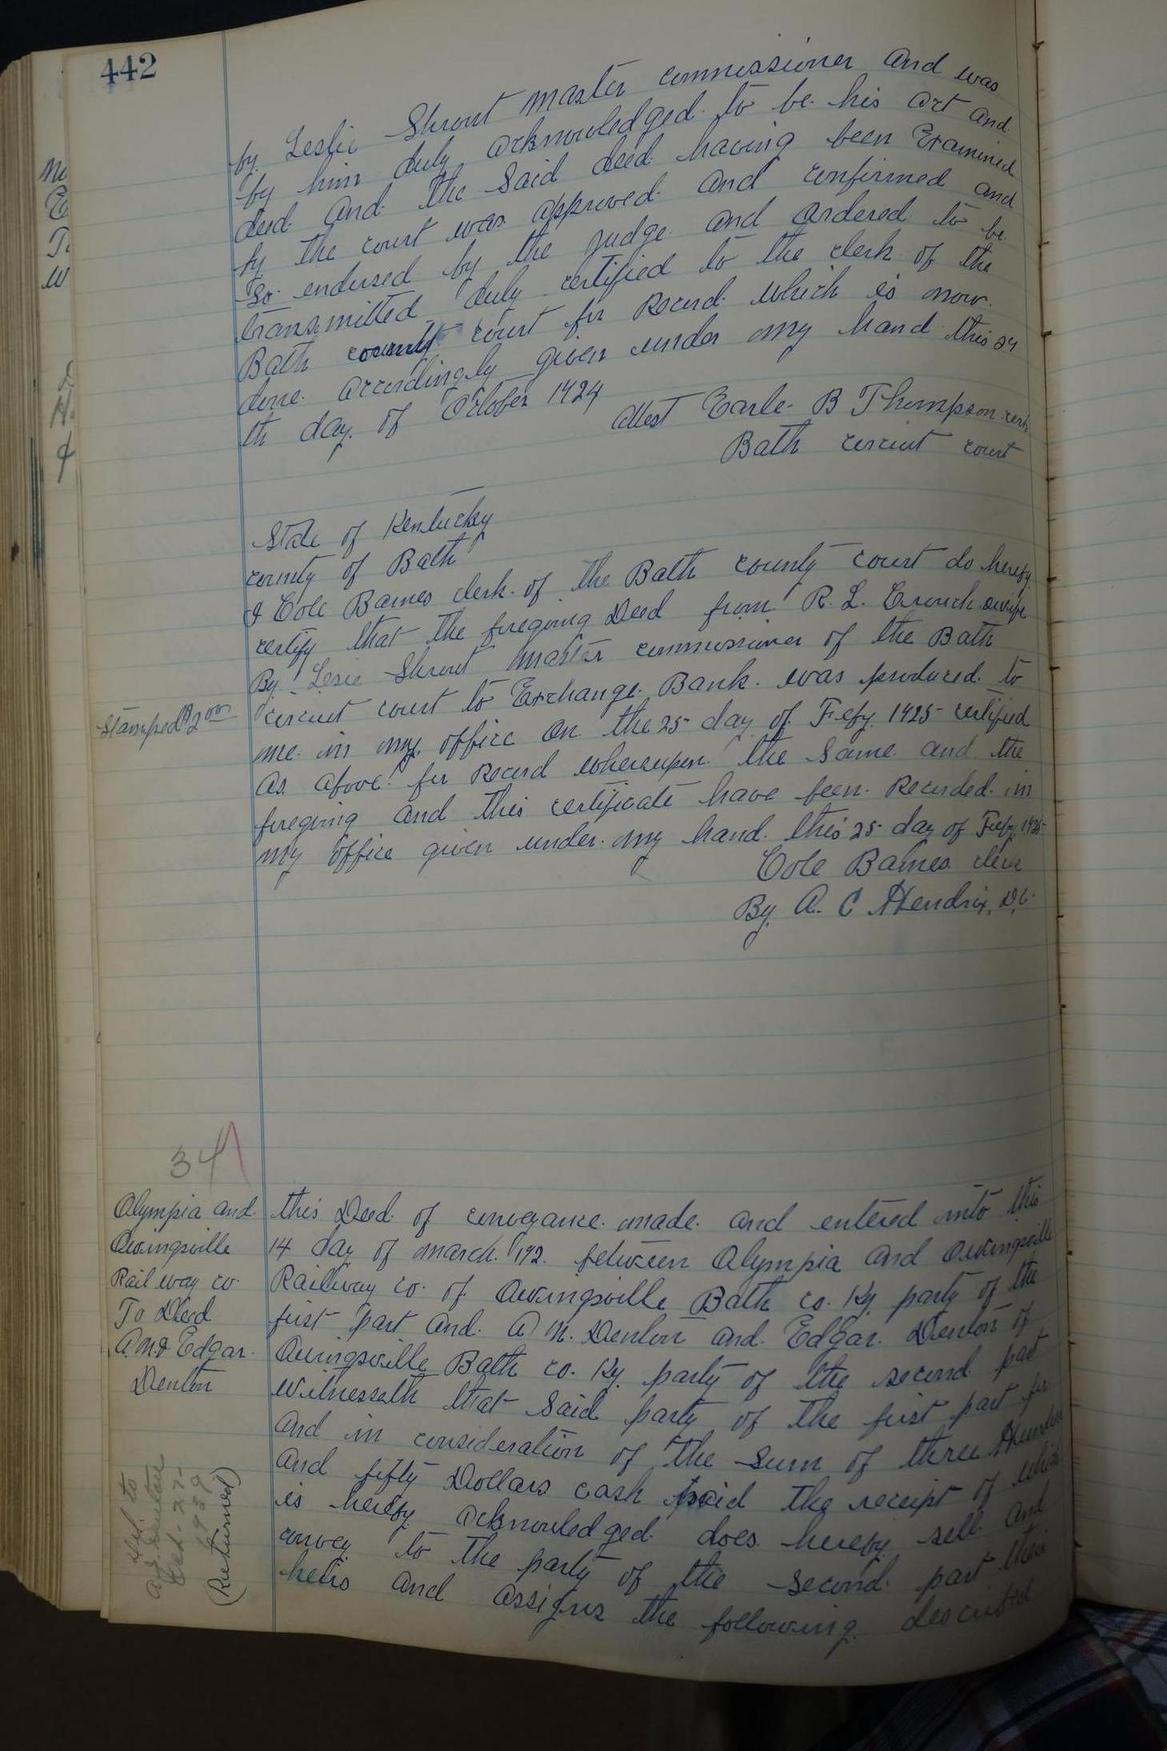 442
by Leslie Shrout master commissioner and was
by him duly acknowledged to be his act and
deed and the said deed having been Examined
by the court was approved and confirmed and
so endorsed by the judge and ordered to be
transmitted duly certified to the clerk of the
Bath county court for Record which is now
done accordingly given under my hand this 24
th day of October 1924
Attest Earle B Thompson clerk
Bath circuit court
State of Kentucky
county of Bath
I Cole Barnes clerk of the Bath county court do hereby
certify that the foregoing Deed from R. L. Crouch & wife
By Lesie Shrout master commissioner of the Bath
Stamped $2 00
circuit court to Exchange Bank was produced to
me in my office on the 25 day of Feby 1925 certified
as above for Record whereupon the same and the
foregoing and this certificate have been Recorded in
my office given under my hand this 25 day of Feby 1925
Cole Barnes clerk
By A. C Hendrix, D.C.
34
Olympia and
Owingsville
Railway co
To Deed
A. M & Edgar
Denton
this Deed of conveyance made and entered into this
14 day of march 192 between Olympia and Owingsville
Railway co. of Owingsville Bath co. Ky party of the
first part and A M. Denton and Edgar Denton of
Owingsville Bath co. Ky party of the second part
Witnesseth that said party of the first part for
and in consideration of the sum of three Hundred
and fifty Dollars cash paid the receipt of which
is hereby acknowledged does hereby sell and
convey to the party of the second part their
heirs and assigns the following described
Del to
Oct-27-
1939
(Returned)